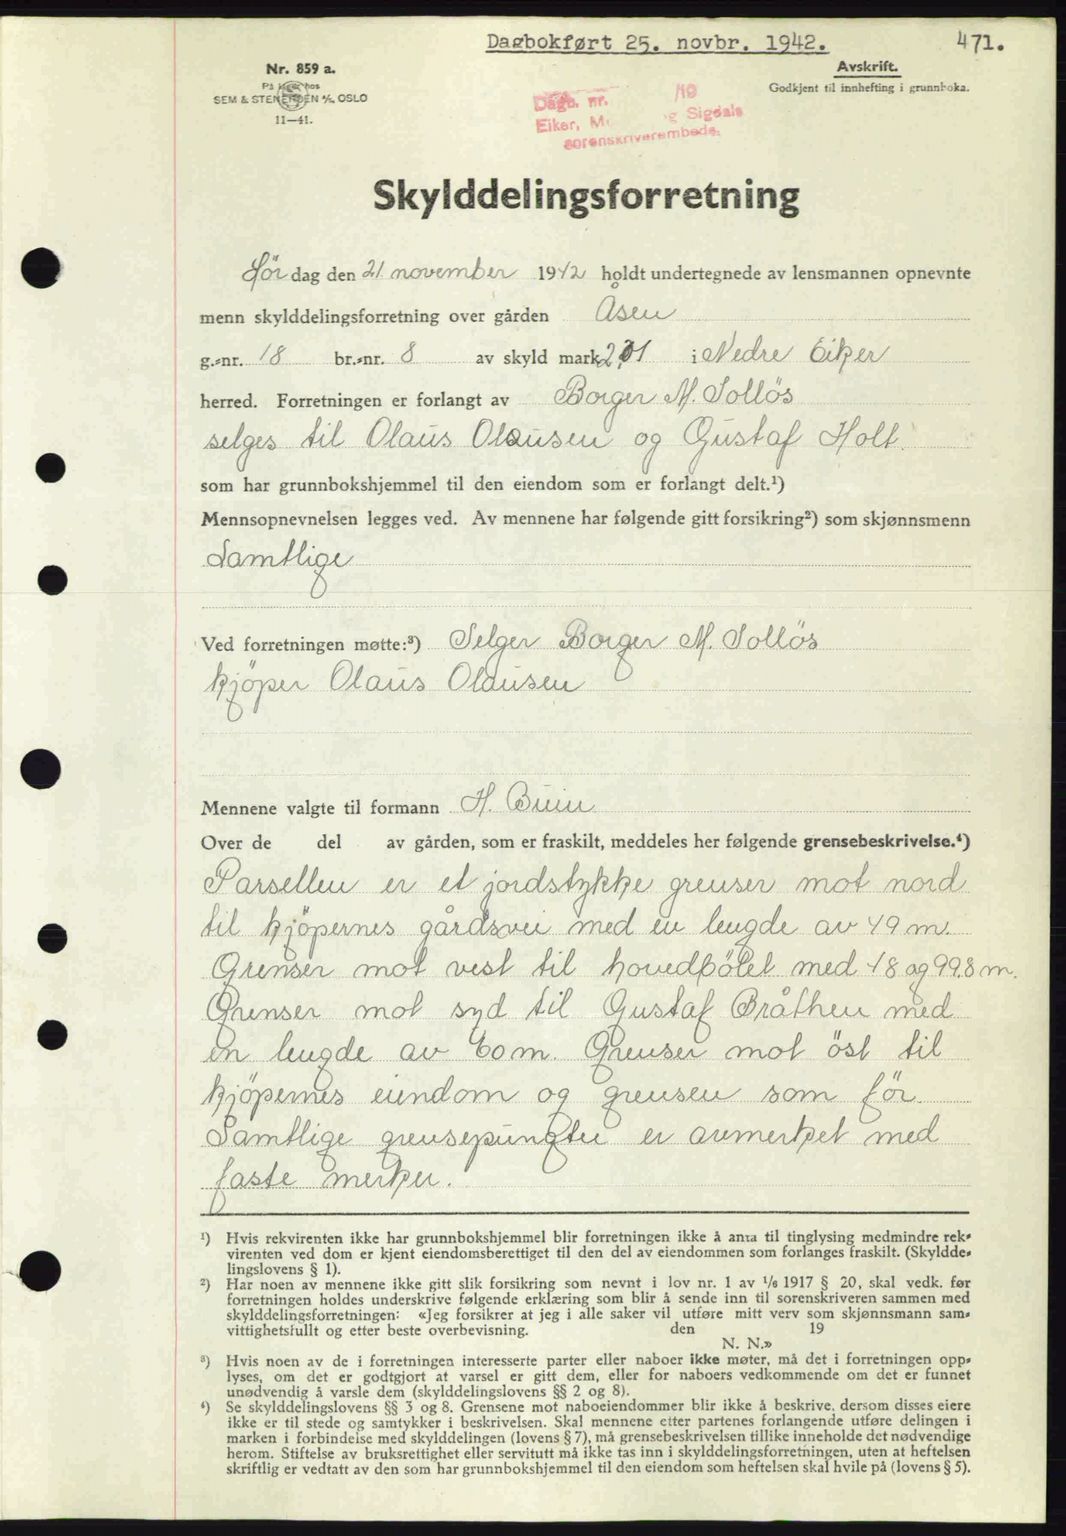 Dagbokført 25. novbr. 1942.
471.
Nr. 859 a.
På lager hos
SEM & STENERSEN A/S, OSLO
11—41.
Avskrift.
Godkjent til innhefting i grunnboka.
Dagb. nr. /19
Eiker, M g Sigdals
sorenskriverembede.
Skylddelingsforretning
Lör dag den 21 november 1942 holdt undertegnede av lensmannen opnevnte
menn skylddelingsforretning over gården Åsen
g.-nr. 18 br.-nr. 8 av skyld mark i Nedre Eiker
herred. Forretningen er forlangt av Borger M. Sollös
selges til Olaus Olausen og Gustaf Holt.
som har grunnbokshjemmel til den eiendom som er forlangt delt.¹)
Mennsopnevnelsen legges ved. Av mennene har følgende gitt forsikring²) som skjønnsmenn
Samtlige
Ved forretningen møtte:³) Selger Borger M. Sollös
kjöper Olaus Olausen
Mennene valgte til formann H. Buin
Over de del av gården, som er fraskilt, meddeles her følgende grensebeskrivelse.⁴)
Parsellen er et jordstykke grenser mot nord
til kjöpernes gårdsvei med en lengde av 49 m.
Grenser mot vest til hovedbölet med 48 og 99.8 m.
Grenser mot syd til Gustaf Bråthen med
en lengde av 60 m. Grenser mot öst til
kjöpernes eiendom og grensen som för.
Samtlige grensepungter er avmerket med
faste merker.
¹) Hvis rekvirenten ikke har grunnbokshjemmel blir forretningen ikke å anta til tinglysing medmindre rek-
virenten ved dom er kjent eiendomsberettiget til den del av eiendommen som forlanges fraskilt. (Skyldde-
lingslovens § 1).
²) Har noen av mennene ikke gitt slik forsikring som nevnt i lov nr. 1 av 1/6 1917 § 20, skal vedk. før
forretningen holdes underskrive følgende erklæring som blir å sende inn til sorenskriveren sammen med
skylddelingsforretningen: «Jeg forsikrer at jeg i alle saker vil utføre mitt verv som skjønnsmann sam-
vittighetsfullt og etter beste overbevisning. den 19
N. N.»
³) Hvis noen av de i forretningen interesserte parter eller naboer ikke møter, må det i forretningen opp-
lyses, om det er godtgjort at varsel er gitt dem, eller for naboers vedkommende om det er funnet
unødvendig å varsle dem (skylddelingslovens §§ 2 og 8).
⁴) Se skylddelingslovens §§ 3 og 8. Grensene mot naboeiendommer blir ikke å beskrive, dersom disses eiere
ikke er til stede og samtykker i beskrivelsen. Skal mennene etter partenes forlangende utføre delingen i
marken i forbindelse med skylddelingen (lovens § 7), må grensebeskrivelsen tillike inneholde det nødvendige
herom. Stiftelse av bruksrettighet eller servitutt må ikke tas inn i skylddelingsforretningen, uten at heftelsen
skriftlig er vedtatt av den som har grunnbokshjemmel til den eiendom som heftelsen skal hvile på (lovens § 5).